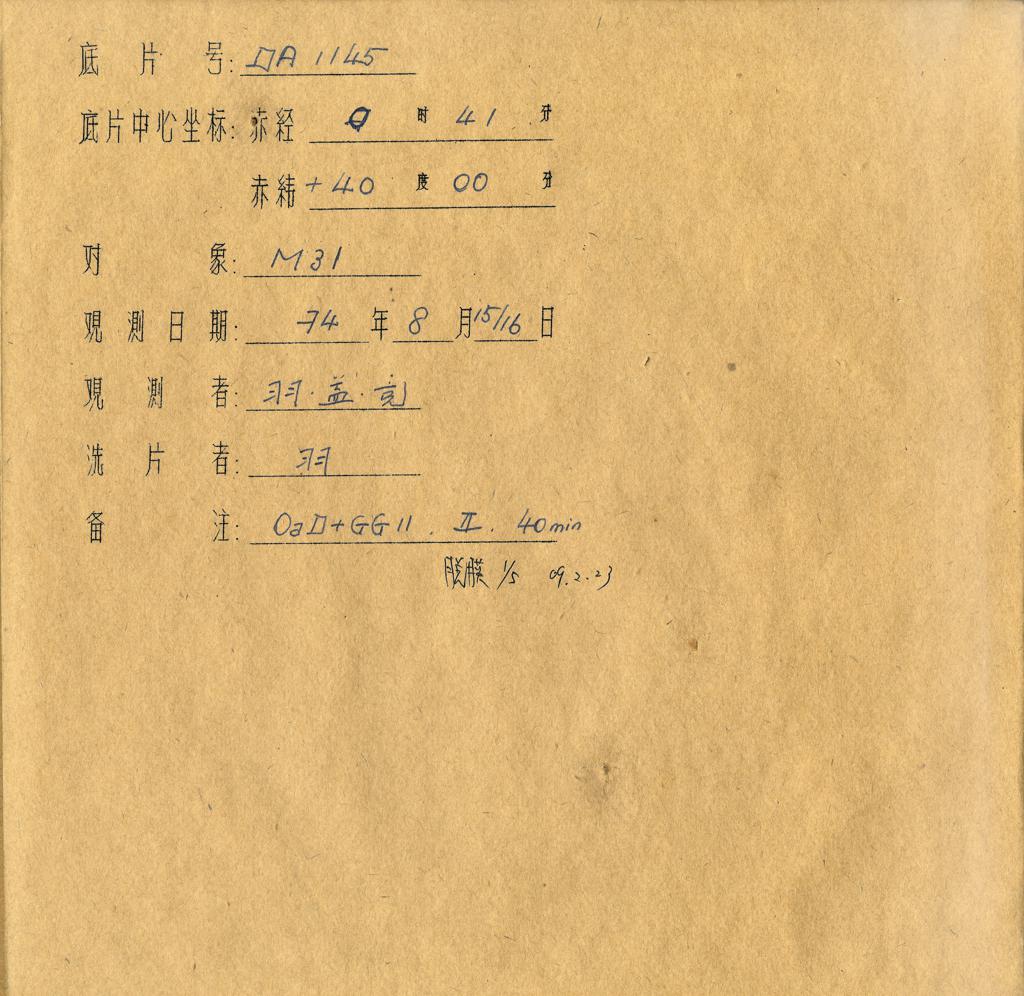 底片号: DA 1145
底片中心坐标: 赤经 0 时 41 分
赤纬 +40 度 00 分
对象: M31
观测日期: 74 年 8 月 15/16 日
观测者: 羽·盖·竞
洗片者: 羽
备注: OaD+GG11 . II . 40min
脱膜 1/5 09.2.23